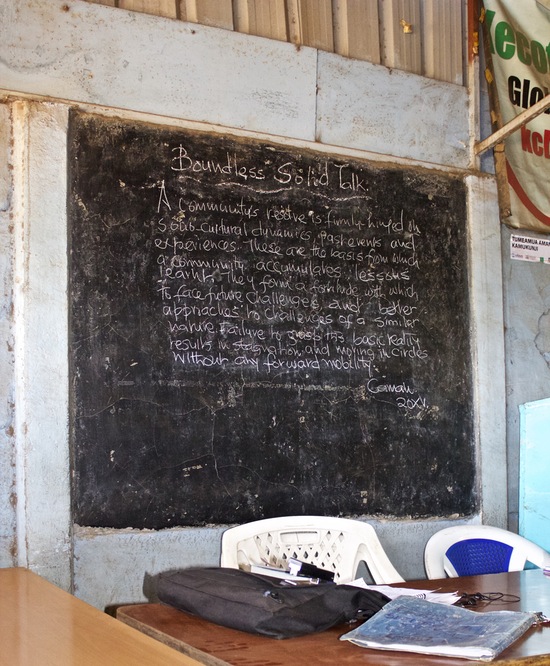 Boundless Solid Talk.
A Community's resolve is firmly hinged on
Socio-cultural dynamics, past events and
experiences. These are the basis from which
a community accumulates lessons
learnt. They form a fortitude with which
to face future challenges, and better
approaches to challenges of a similar
nature. Failure to grasp this basic reality
results in stagnation, and moving in circles
without any forward mobility.
GLO
kcb
TUMBAMUA AMA
KAMUKUNJI